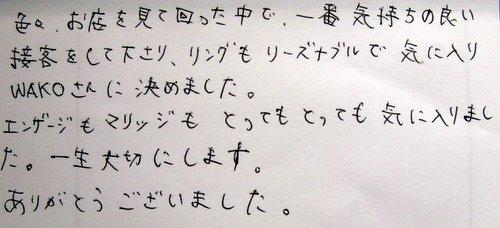 色々、お店を見て回った中で、一番気持ちの良い
接客をして下さり、リングもリーズナブルで気に入り
WAKOさんに決めました。
エンゲージもマリッジもとってもとっても気に入りまし
た。一生大切にします。
ありがとうございました。